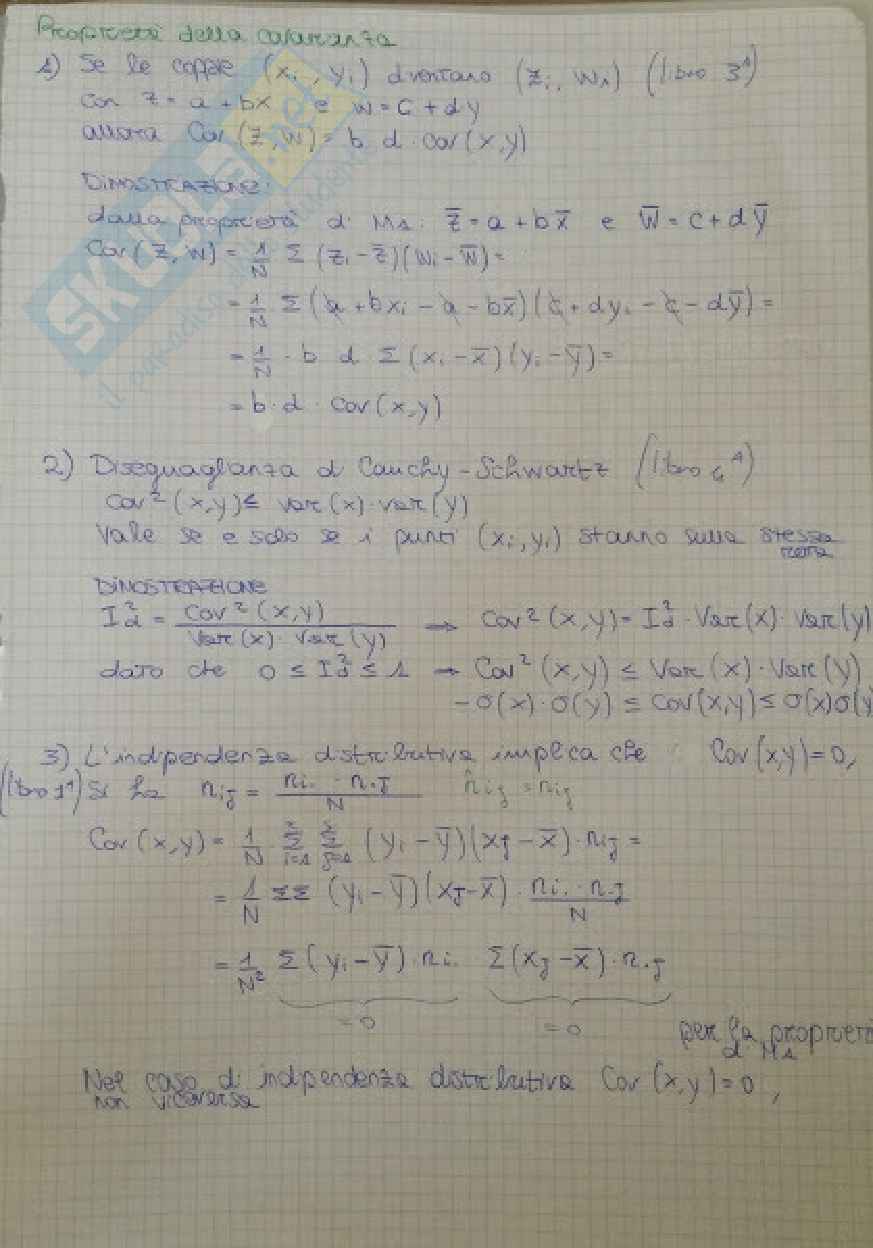 Proprietà della covarianza
1) Se le coppie (xi, yi) diventano (zi, wi) (libro 3^)
con z = a + bx e w = c + dy
allora Cov(z, w) = b d · cov(x,y)
DIMOSTRAZIONE:
dalla proprietà di M1: z̅ = a + bx̅ e w̅ = c + dy̅
Cov(z, w) = 1/N Σ (zi - z̅)(wi - w̅) =
= 1/N Σ (a + bxi - a - bx̅)(c + dyi - c - dy̅) =
= 1/N · b d Σ (xi - x̅)(yi - y̅) =
= b · d · cov(x,y)
2) Diseguaglianza di Cauchy-Schwartz (libro 4^)
Cov²(x,y) ≤ var(x)·var(y)
Vale se e solo se i punti (xi, yi) stanno sulla stessa
retta
DIMOSTRAZIONE
Id² = Cov²(x,y) / Var(x)·Var(y) → Cov²(x,y) = Id² · Var(x)·Var(y)
dato che 0 ≤ Id² ≤ 1 → Cov²(x,y) ≤ Var(x)·Var(y)
-σ(x)·σ(y) ≤ Cov(x,y) ≤ σ(x)σ(y)
3) L'indipendenza distributiva implica che : Cov(x,y) = 0,
(libro 1^) Si ha nij = ni. · n.j / N n̂ij = nij
Cov(x,y) = 1/N Σ Σ (yi - y̅)(xj - x̅) · nij =
= 1/N ΣΣ (yi - y̅)(xj - x̅) · ni. · n.j / N
= 1/N² Σ(yi - y̅) · ni. Σ(xj - x̅) · n.j
= 0 = 0 per la proprietà
di M1
Nel caso di indipendenza distributiva Cov(x,y) = 0,
non viceversa
SKUOLA.net
il paradiso dello studente